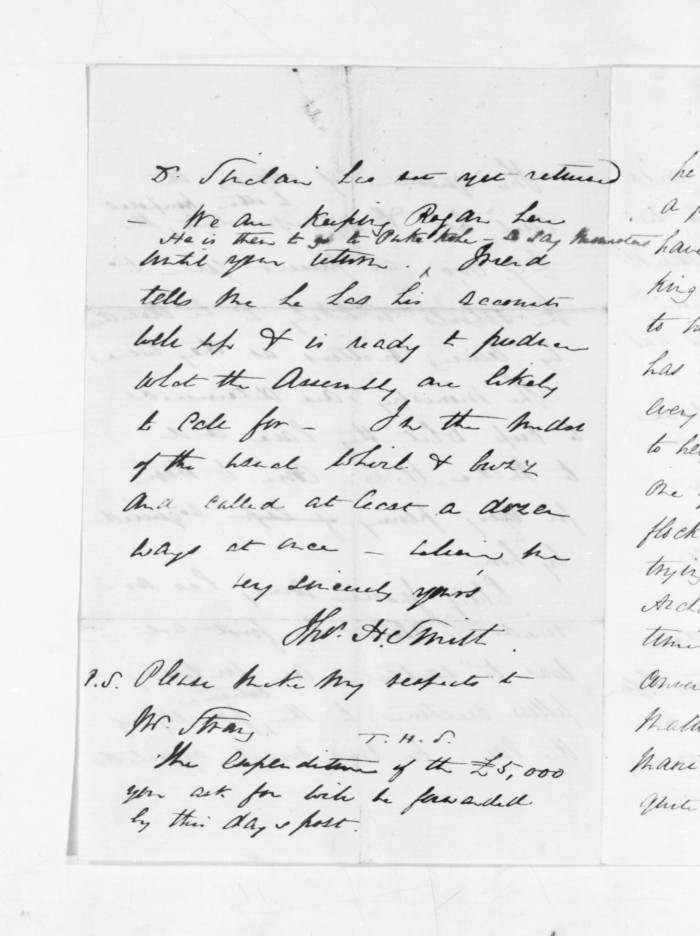 Dr. Sinclair has not yet returned
– We are keeping Rogan here
He is then to go to Puke Kohe – to say
until your return.
tells me he has his accounts
well up & is ready to produce
what the Assembly are likely
to call for – In the midst
of the usual whirl & buzz
and called at least a dozen
ways at once – believe me
very sincerely yours
Thos. H. Smith
P.S. Please make my respects to
Mr. Strang
T. H. S.
The expenditure of the £5,000
you ask for will be forwarded
by this day's post.
he
a
have
king
to
has
every
to he
one
flock
trying
time
quite